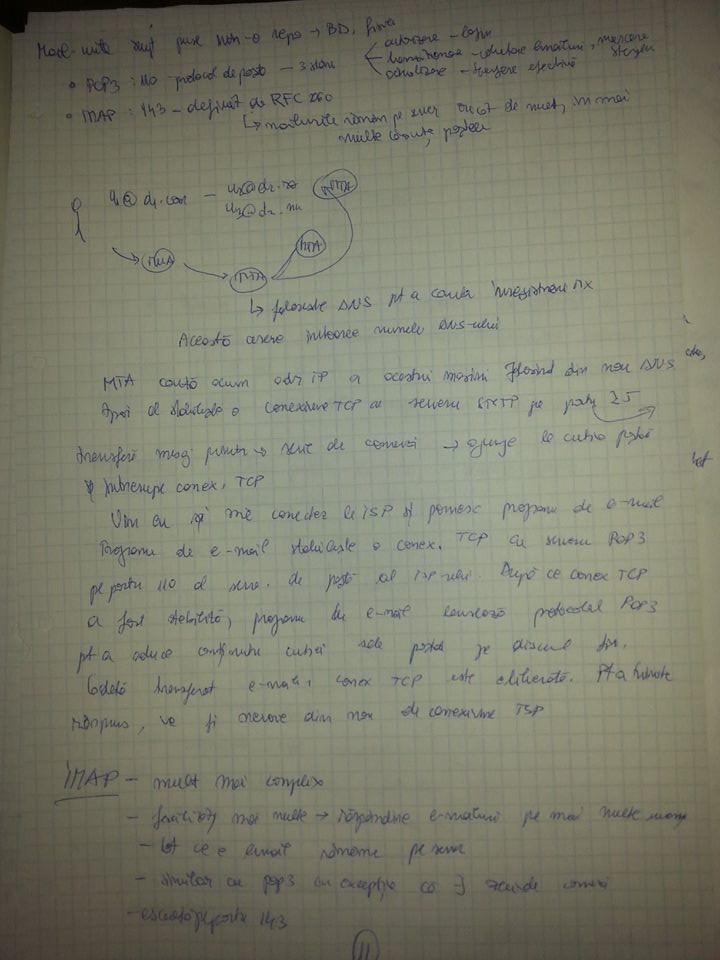 Mail-urile sunt puse într-o repo → BD, fișier
autorizare - login
• POP3 : 110 - protocol de poștă - 3 stări
tranzacționare - aducere emailuri, marcare ștergeri
actualizare - ștergere efectivă
• IMAP : 143 - definit de RFC
↳ mailurile rămân pe server de user, în mai
multe căsuțe poștale
u@d1.com - u2@d2.ro
u3@d2.
MTA
MTA
MUA
MTA
↳ folosește DNS pt a căuta înregistrări MX
Această cerere întoarce numele DNS-ului
MTA caută acum adr IP a acestei mașini folosind din nou DNS
Apoi el stabilește o conexiune TCP cu serverul SMTP pe portul 25
transferă mesaj printr-o serie de comenzi → ajunge la cutia poștală
și întrerupe conex. TCP
Vin eu și mă conectez la ISP și pornesc programul de e-mail
Programul de e-mail stabilește o conex. TCP cu serverul POP3
pe portul 110 al serv. de poștă al ISP-ului. După ce conex TCP
a fost stabilită, programul de e-mail lansează protocolul POP3
pt a aduce conținutul cutiei sale poștale pe discul
Odată transferat e-mailul, conex TCP este eliberată. Pt a trimite
răspuns, va fi nevoie din nou de conexiune TCP
IMAP - mult mai complex
- facilități mai multe → răspândire e-mailuri pe mai multe
- tot ce e email rămâne pe server
- similar cu POP3 cu excepția că ∃ comenzi
- ascultă pe portul 143
11